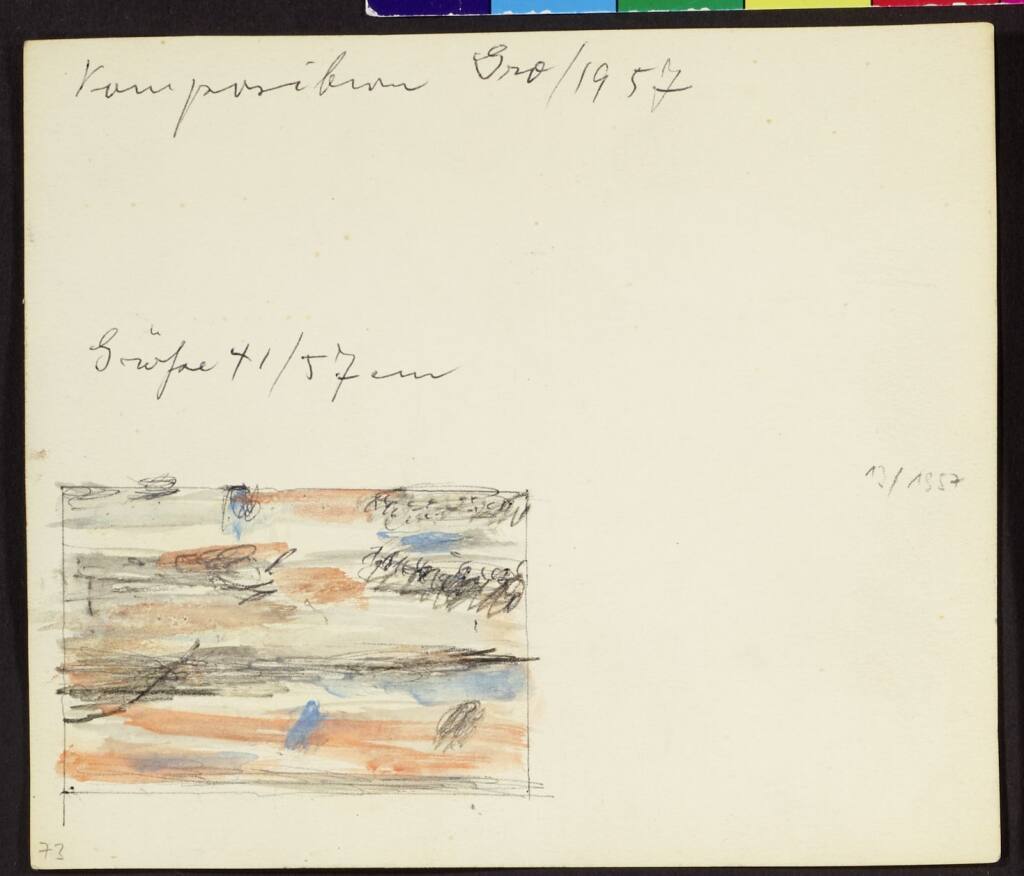 Komposition Gro/1957
Größe 41/57 cm
13/1957
73